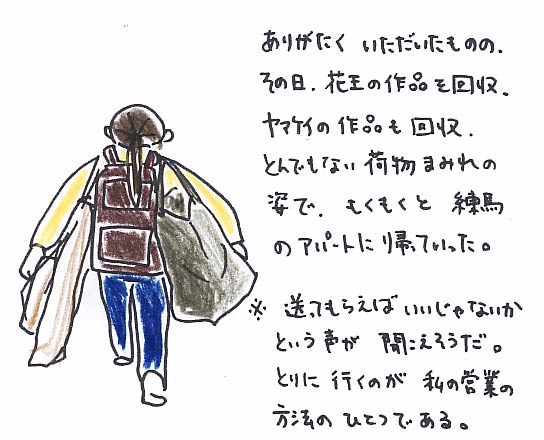 ありがたく いただいたものの、
その日、花王の作品を回収、
ヤマケイの作品も回収、
とんでもない荷物まみれの
姿で、もくもくと 練馬
のアパートに帰っていった。
※ 送てもらえばいいじゃないか
という声が 聞こえそうだ。
とりに行くのが 私の営業の
方法のひとつである。